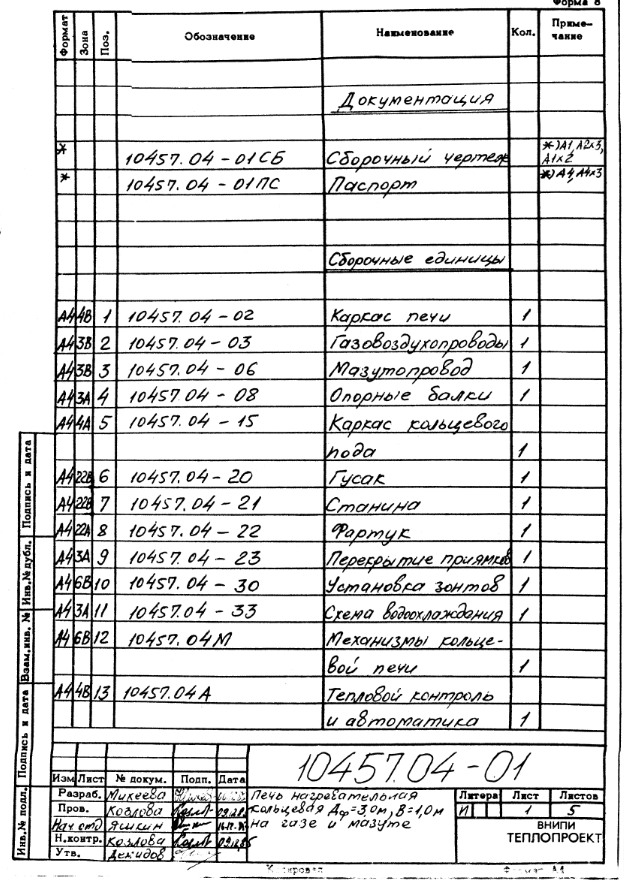 Форма 8
Формат Зона Поз. Обозначение Наименование Кол. Примечание
Документация
* 10457.04-01СБ Сборочный чертеж *)А1, А2х3, А1х2
* 10457.04-01ПС Паспорт *)А4, А4х3
Сборочные единицы
А4 4В 1 10457.04-02 Каркас печи 1
А4 3В 2 10457.04-03 Газовоздухопроводы 1
А4 3В 3 10457.04-06 Мазутопровод 1
А4 3А 4 10457.04-08 Опорные балки 1
А4 4А 5 10457.04-15 Каркас кольцевого
пода 1
А4 22В 6 10457.04-20 Гусак 1
А4 22В 7 10457.04-21 Станина 1
А4 22А 8 10457.04-22 Фартук 1
А4 3А 9 10457.04-23 Перекрытие приямков 1
А4 6В 10 10457.04-30 Установка зонтов 1
А4 3А 11 10457.04-33 Схема водоохлаждения 1
А4 6В 12 10457.04М Механизмы кольце-
вой печи 1
А4 4В 13 10457.04А Тепловой контроль
и автоматика 1
Инв.№ подл. Подпись и дата Взам.инв. № Инв.№ дубл. Подпись и дата
10457.04-01
Изм Лист № докум. Подп. Дата
Разраб. Микеева
Пров. Козлова
Нач. отд Яшкин
Н.контр. Козлова
Утв. Демидов
Печь нагревательная
кольцевая Дф=3,0м, В=1,0м
на газе и мазуте
Литера Лист Листов
И 1 5
ВНИПИ
ТЕПЛОПРОЕКТ
Копировал Формат А4